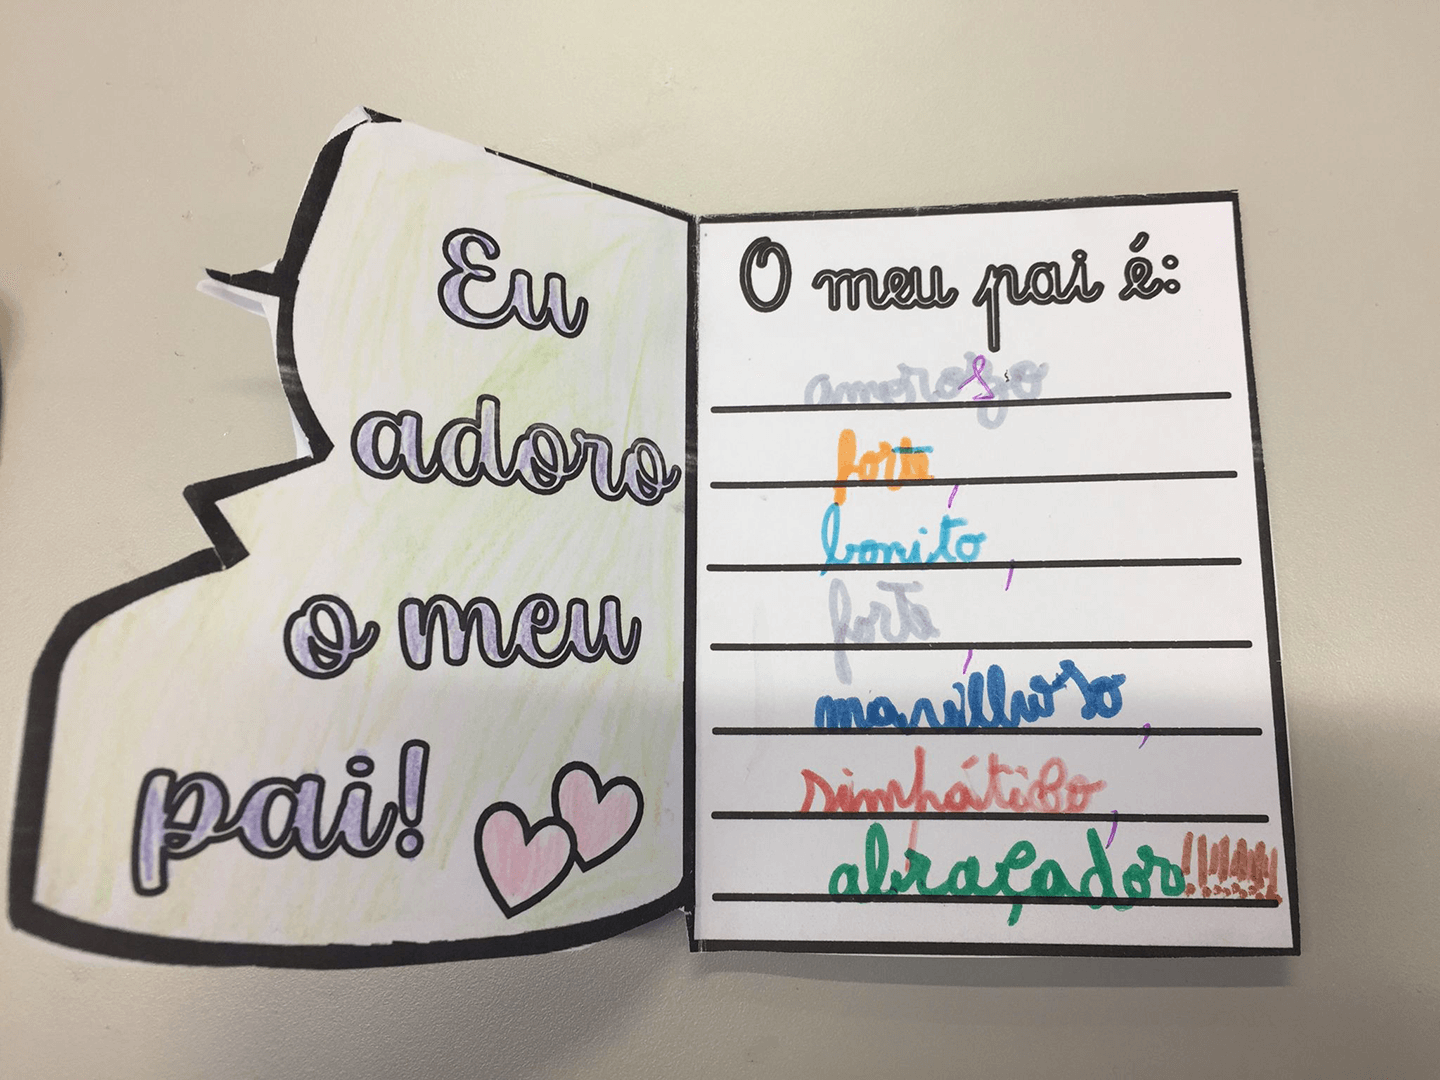 Eu
adoro
o meu
pai!
O meu pai é:
amoroso
forte,
bonito,
forte,
maravilhoso,
simpático,
abraçador!!!!!!!!!